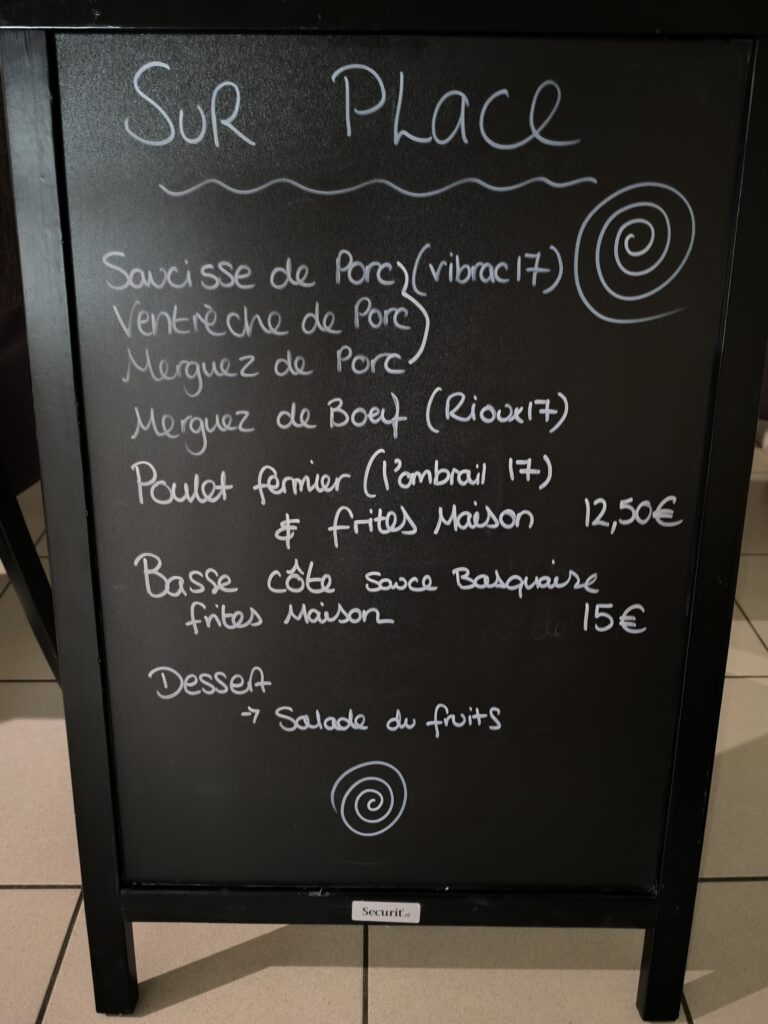 SUR PLACE
Saucisse de Porc (vibrac 17)
Ventrèche de Porc
Merguez de Porc
Merguez de Boeuf (Rioux 17)
Poulet fermier (l'ombrail 17)
& frites Maison 12,50€
Basse côte sauce Basquaise
frites Maison 15€
Dessert
→ Salade du fruits
Securit.nl